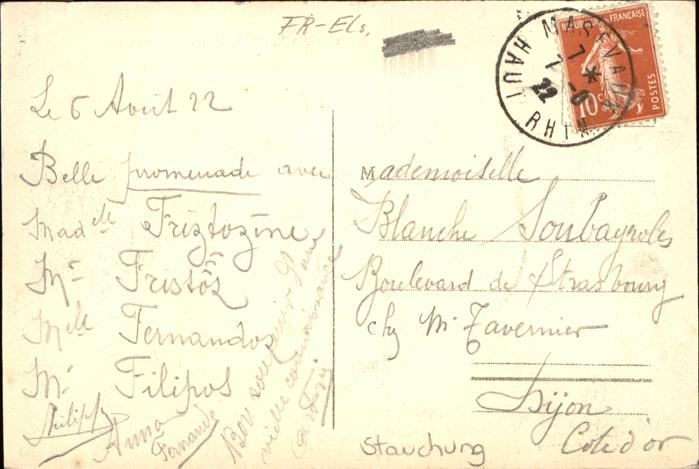 FR-Els,
Le 6 Août 22
Belle promenade avec
Madelle Friztozine
Mr Fristoz
Melle Fernandos
Mr Filipos
Philippe
Anna
Fernande
Bon souvenir d'une
vieille connaissance
MASEVAUX
7 * 7-8
22
HAUT RHIN
RÉPUBLIQUE FRANÇAISE
10c
POSTES
Mademoiselle
Blanche Soubayroles
Boulevard de Strasbourg
chez Mr Tavernier
Dijon
Côte d'or
Stauchung